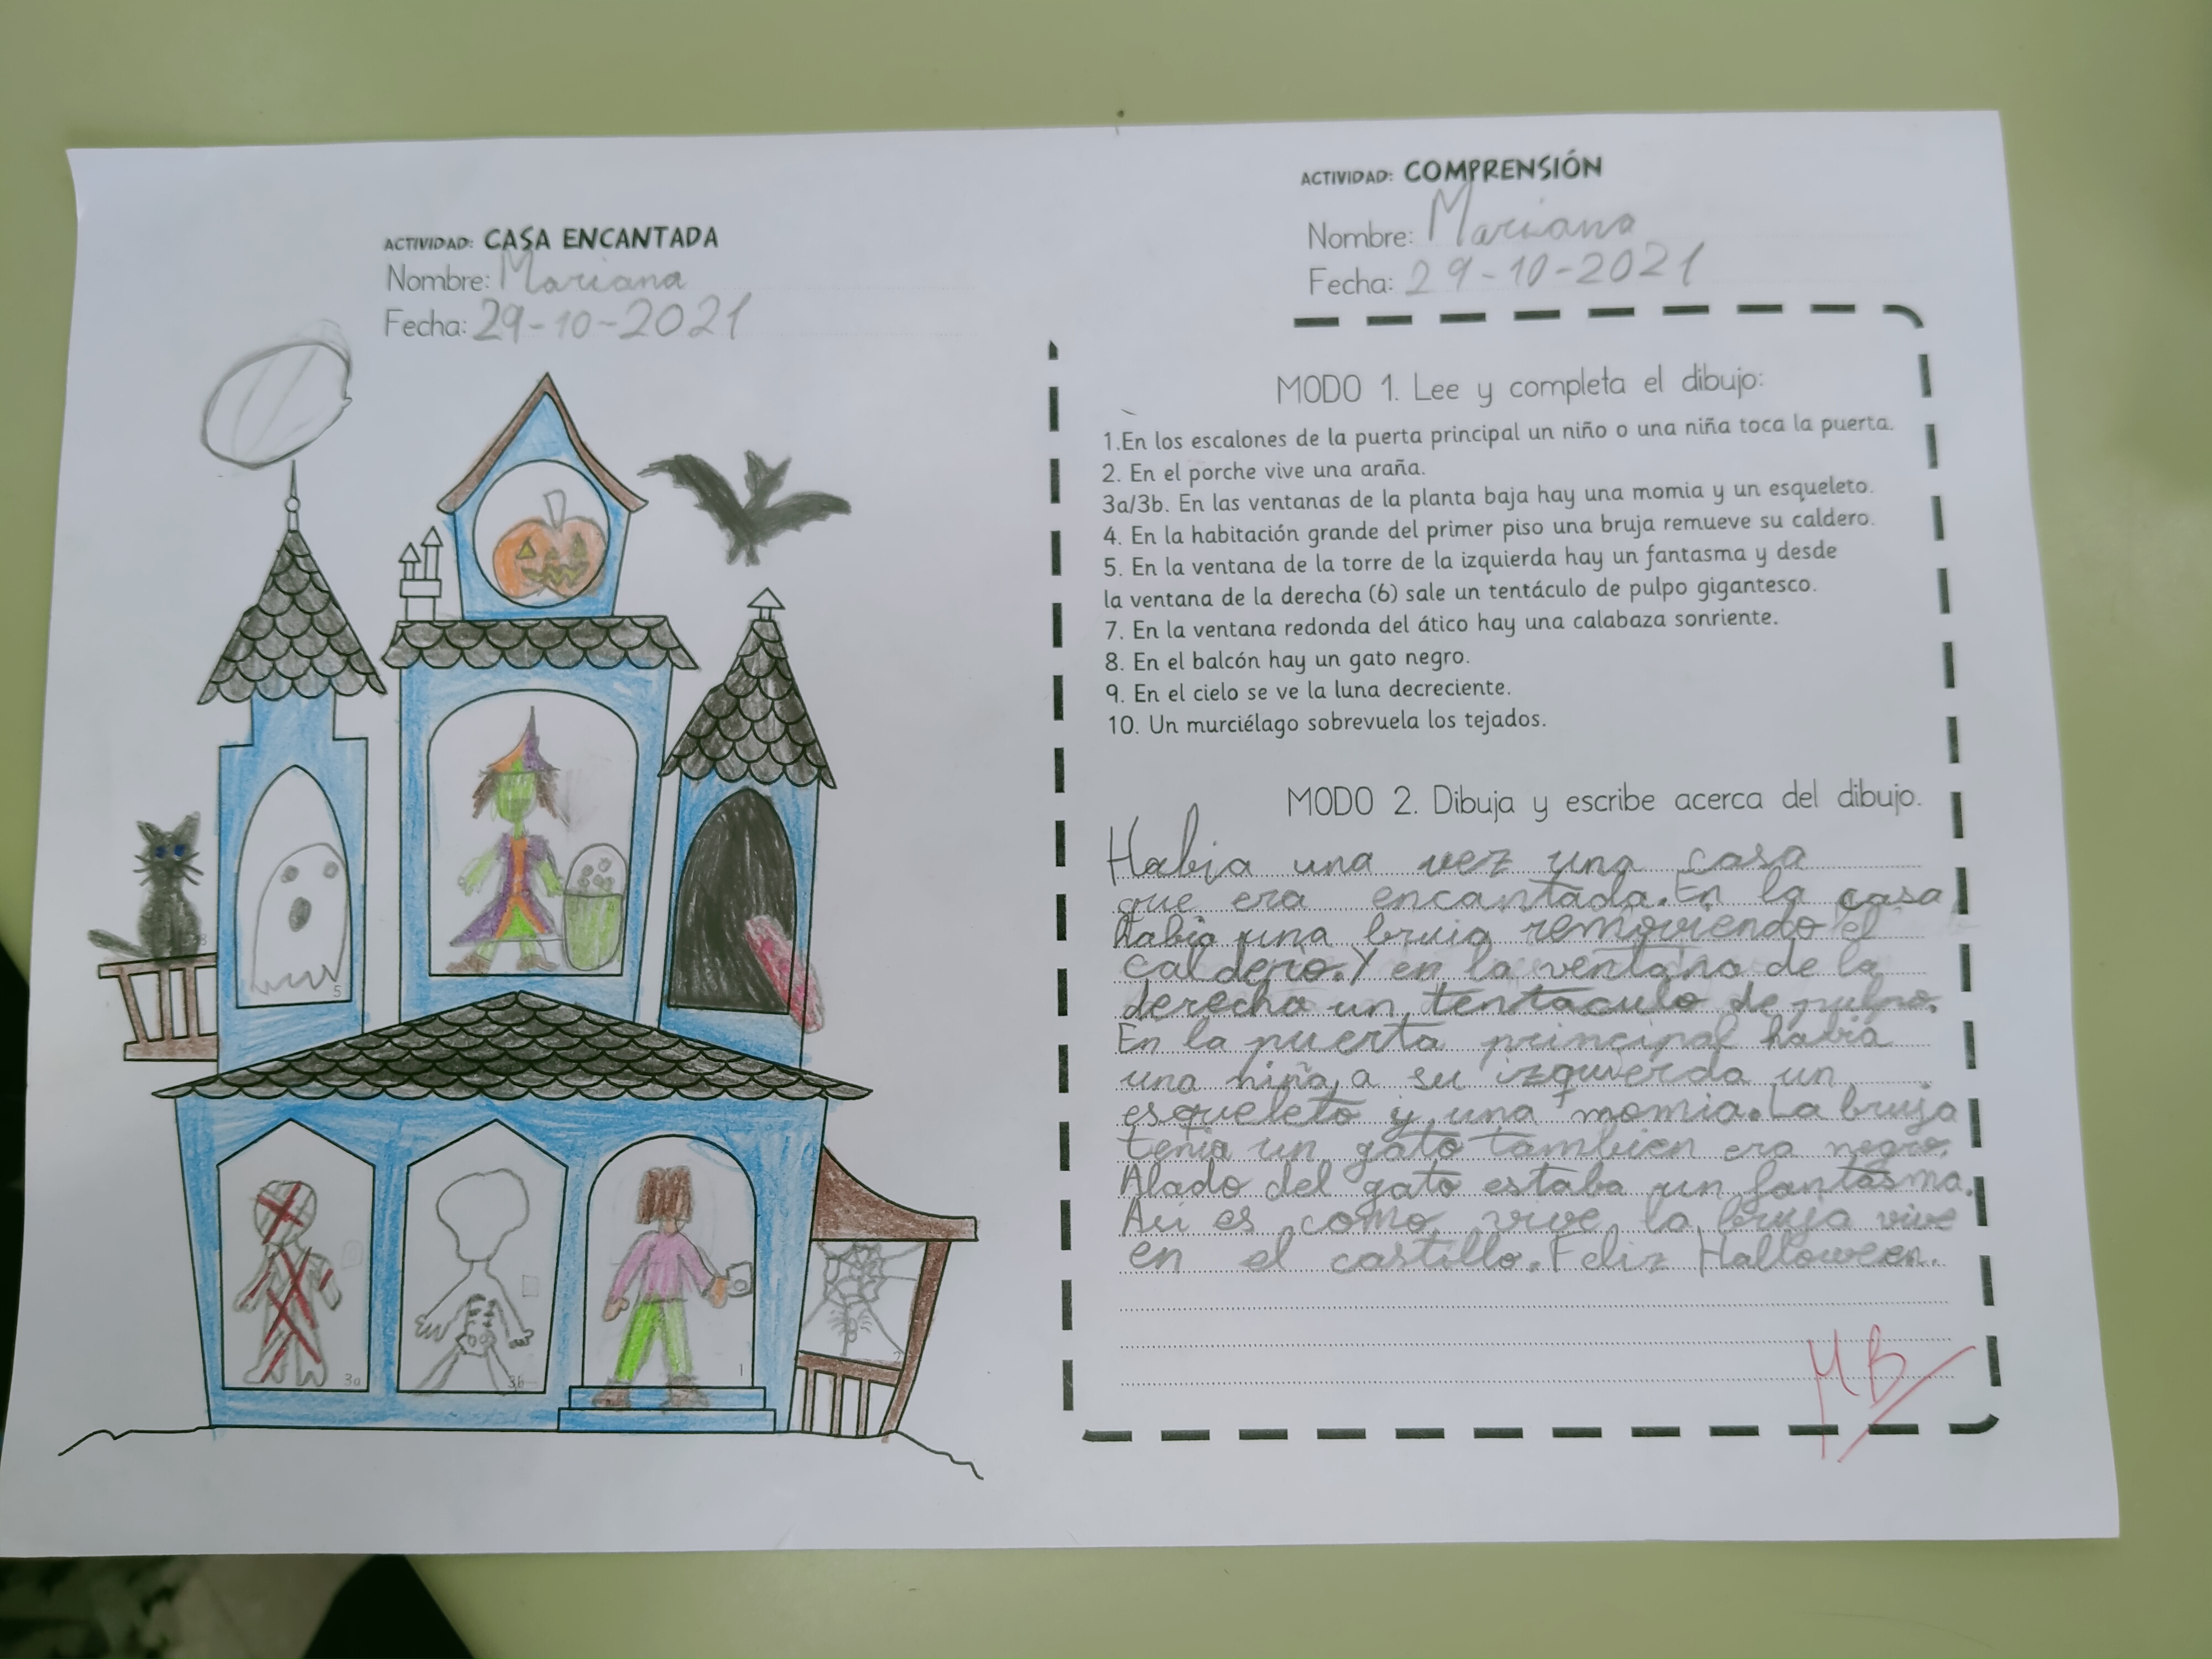 ACTIVIDAD: CASA ENCANTADA
Nombre: Mariana
Fecha: 29-10-2021
5
8
3a
3b
1
2
ACTIVIDAD: COMPRENSIÓN
Nombre: Mariana
Fecha: 29-10-2021
MODO 1. Lee y completa el dibujo:
1.En los escalones de la puerta principal un niño o una niña toca la puerta.
2. En el porche vive una araña.
3a/3b. En las ventanas de la planta baja hay una momia y un esqueleto.
4. En la habitación grande del primer piso una bruja remueve su caldero.
5. En la ventana de la torre de la izquierda hay un fantasma y desde
la ventana de la derecha (6) sale un tentáculo de pulpo gigantesco.
7. En la ventana redonda del ático hay una calabaza sonriente.
8. En el balcón hay un gato negro.
9. En el cielo se ve la luna decreciente.
10. Un murciélago sobrevuela los tejados.
MODO 2. Dibuja y escribe acerca del dibujo.
Habia una vez una casa
que era encantada. En la casa
habia una bruja removiendo el
caldero. Y en la ventana de la
derecha un tentaculo de pulpo.
En la puerta principal habia
una niña, a su izquierda un
esqueleto y una momia. La bruja
tenia un gato tambien era negro.
Alado del gato estaba un fantasma.
Asi es como vive la bruja vive
en el castillo. Feliz Halloween.
MB